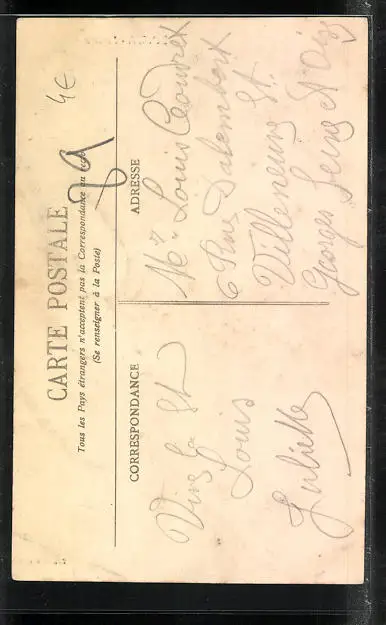 4€
CARTE POSTALE
Tous les Pays étrangers n'acceptent pas la Correspondance au
(Se renseigner à la Poste)
CORRESPONDANCE
Vive la St
Louis
Juliette
ADRESSE
Mr Louis
6 Rue Dalembert
Villeneuve St.
Georges Seine et Oise